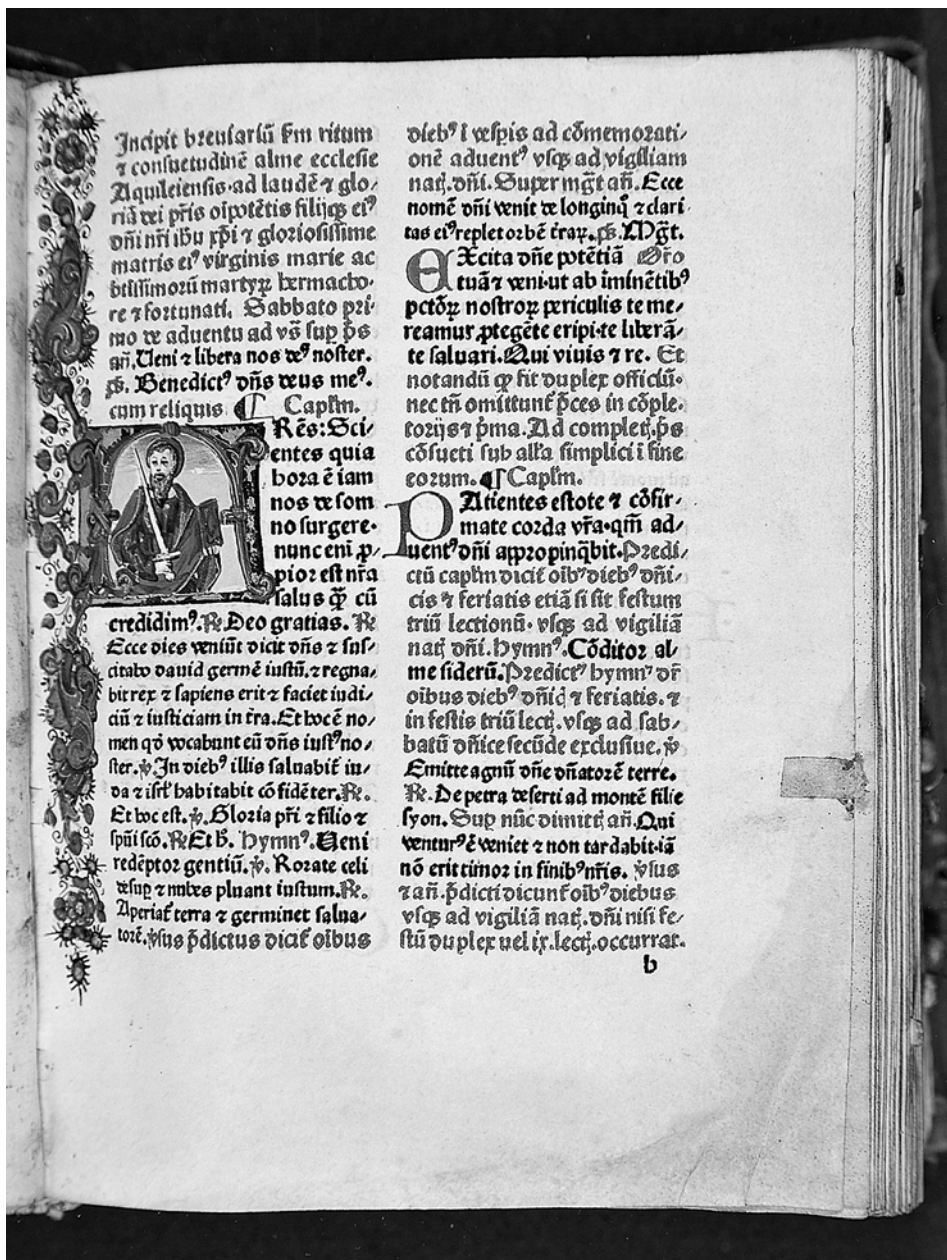 Incipit breuiariū ẜm ritum
⁊ consuetudinē alme ecclesie
Aquileiensis·ad laudē ⁊ glo⸗
riā dei p̄ris oīpotētis filijq̄ꝫ eiꝰ
dn̄i nr̄i ihu xp̄i ⁊ gloriosissime
matris eiꝰ virginis marie ac
btīssimorū martyꝝ hermacho⸗
re ⁊ fortunati. Sabbato pri⸗
mo de aduentu ad vs̄ sup p̄s
an̄. Ueni ⁊ libera nos deꝰ noster.
ps̄. Benedictꝰ dn̄s deus meꝰ.
cum reliquis ¶ Caplm̄.
Rēs: Sci⸗
entes quia
hora ē iam
nos de som
no surgere·
nunc eni ꝓ⸗
pior est nr̄a
salus ꝙ̄ cū
credidimꝰ. ℟ Deo gratias. ℟
Ecce dies veniūt dicit dn̄s ⁊ sus
citabo dauid germē iustū. ⁊ regna⸗
bit rex ⁊ sapiens erit ⁊ faciet iudi⸗
ciū ⁊ iusticiam in t̄ra. Et hoc ē no⸗
men qd̄ vocabunt eū dn̄s iustꝰ no⸗
ster. ℣. In diebꝰ illis saluabit̄ iu⸗
da ⁊ isrl̄ habitabit cōfidēter. ℟.
Et hoc est. ℣. Gloria pr̄i ⁊ filio ⁊
spūi scō. ℟ Et h̄. Hymnꝰ. Ueni
redēptor gentiū. ℣. Rorate celi
desup ⁊ nubes pluant iustum. ℟.
Aperiat̄ terra ⁊ germinet salua⸗
torē. ℣sus p̄dictus dicit̄ oībus
diebꝰ ī vesꝑis ad cōmemorati⸗
onē aduentꝰ vsqꝫ ad vigiliam
natꝭ. dn̄i. Super mḡt an̄. Ecce
nomē dn̄i venit de longinq̊ ⁊ clari
tas eiꝰ replet orbē t̄raꝝ. ps̄. Mḡt.
EXcita dn̄e potētiā Or̄o
tuā ⁊ veni·ut ab īminētibꝰ
pctōꝝ nostroꝝ periculis te me⸗
reamur ꝓtegēte eripi·te liberā⸗
te saluari. Qui viuis ⁊ re. Et
notandū ꝙ fit duplex officiū·
nec tn̄ omittunt̄ p̄ces in cōple⸗
torijs ⁊ p̄ma. Ad completꝭ. p̄s
cōsueti sub alla simplici ī fine
eorum. ¶ Caplm̄.
PAtientes estote ⁊ cōfir⸗
mate corda vr̄a·qm̄ ad⸗
uentꝰ dn̄i appropinq̄bit. Predi⸗
ctū caplm̄ dicit̄ oībꝰ diebꝰ dn̄i⸗
cis ⁊ feriatis etiā si sit festum
triū lectionū· vsqꝫ ad vigiliā
natꝭ dn̄i. Hymnꝰ. Cōditor al⸗
me siderū. Predictꝰ hymnꝰ dr̄
oībus diebꝰ dn̄icꝭ ⁊ feriatis. ⁊
in festis triū lectꝭ. vsqꝫ ad sab⸗
batū dn̄ice secūde exclusiue. ℣
Emitte agnū dn̄e dn̄atorē terre.
℟. De petra deserti ad montē filie
syon. Sup nūc dimittꝭ an̄. Qui
venturꝰ ē veniet ⁊ non tardabit·iā
nō erit timor in finibꝰ nr̄is. ℣sus
⁊ an̄. p̄dicti dicunt̄ oībꝰ diebus
vsqꝫ ad vigiliā natꝭ. dn̄i nisi fe⸗
stū duplex uel ix. lectꝭ. occurrat.
b